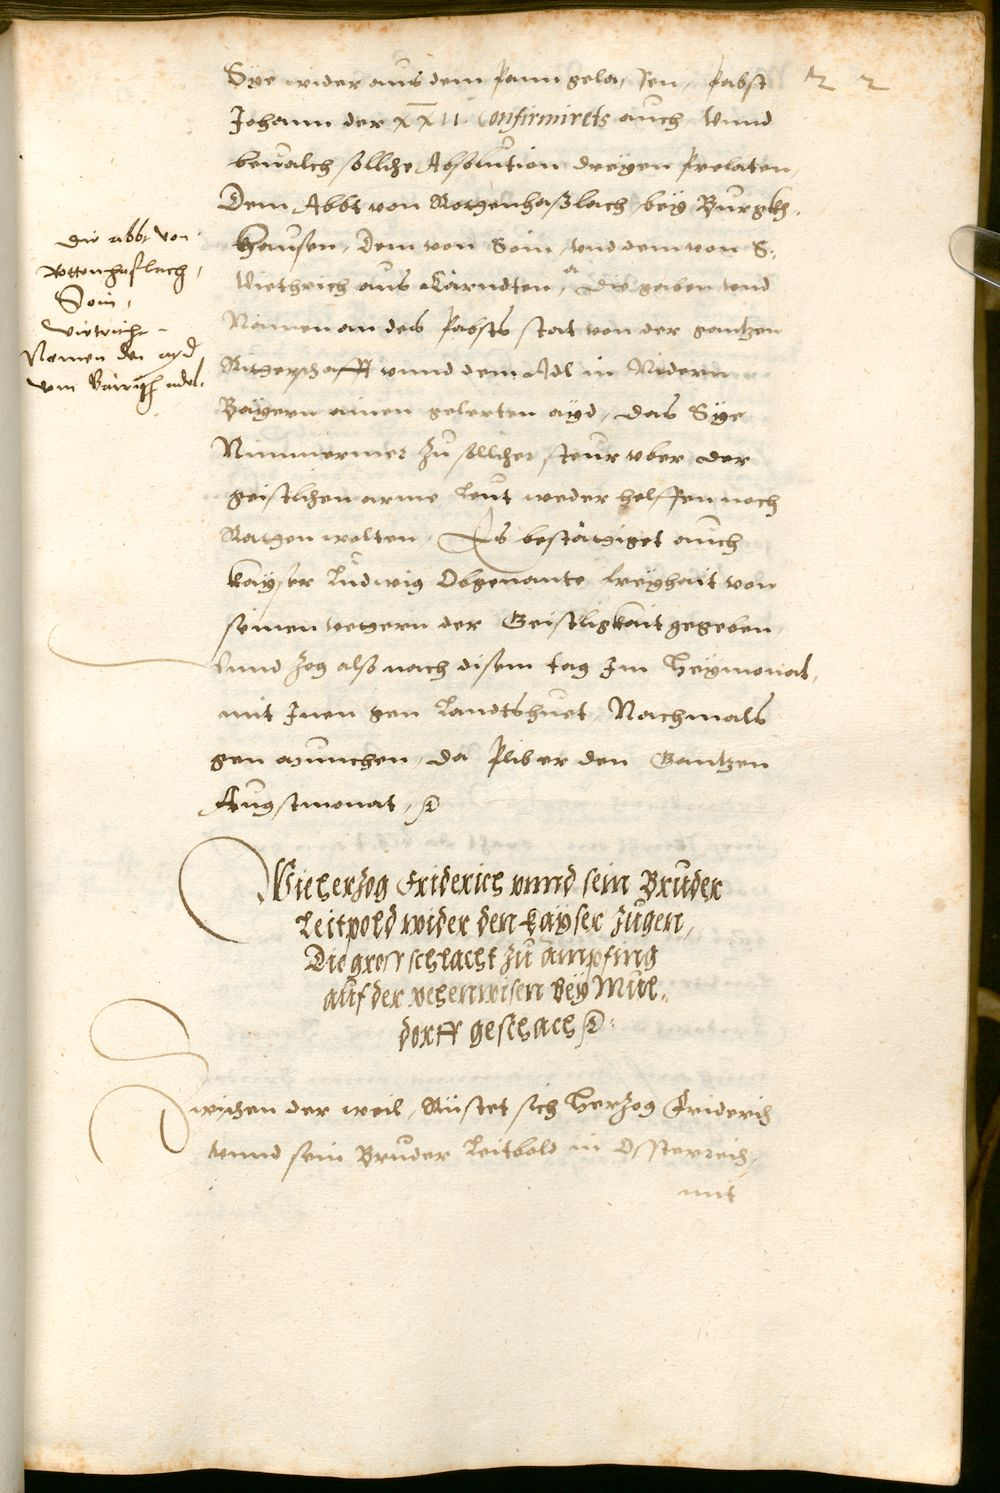 22
Sÿe wider aus dem Pann gelassen, Pabst
Johann der XXII. Confirmirets auch, Vnnd
beualch solliche Absolution dreÿen Prelaten,
Dem Abbt von Rottenhaßlach beÿ Burgkh,
hausen, Dem von Soin, vnd dem von S.
Viethrich aus Kärndten, Die gaben vnd
Namen an des Pabsts stat von der gantzen
Ritterschafft vnnd dem Adl in Nidern
Baÿern ainen gelerten aÿd, das Sÿe
Nimmermer zu sollicher steur vber der
geistlichen arme Leut weder helffen noch
Ratten wolten, Es bestättiget auch
Kaÿser Ludwig Obgenante freÿhait von
seinen vettern der Geistligkait gegeben,
Vnnd zog also nach disem tag Im Heÿmonat,
mit Inen gen Landtshuet, Nachmals
gen München, da Plib er den Gantzen
Augstmonat,
Die abbt von
Rottenhaslach,
Soin,
Vietriche
Namen den aÿd
vom Bairisch adel.
Wie herzog Friderich vnnd sein Bruder
Leitpold wider den Kaÿser zugen,
Die gross schlacht zu Ampfing
auf der vehenwisen beÿ Mül,
dorff geschach
Zwischen der weil, Rüstet sich Herzog Friderich
vnnd sein Bruder Leitbold in Ossterreich,
mit